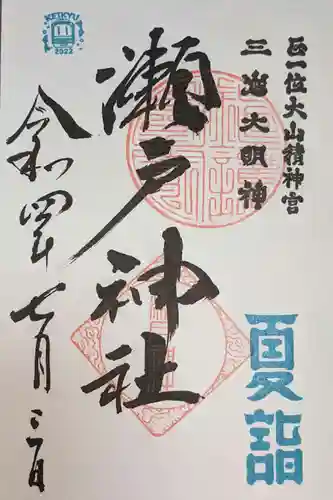 正一位大山積神宮
三島大明神
瀬戸神社
令和四年七月三一日
夏詣
KEIKYU
2022